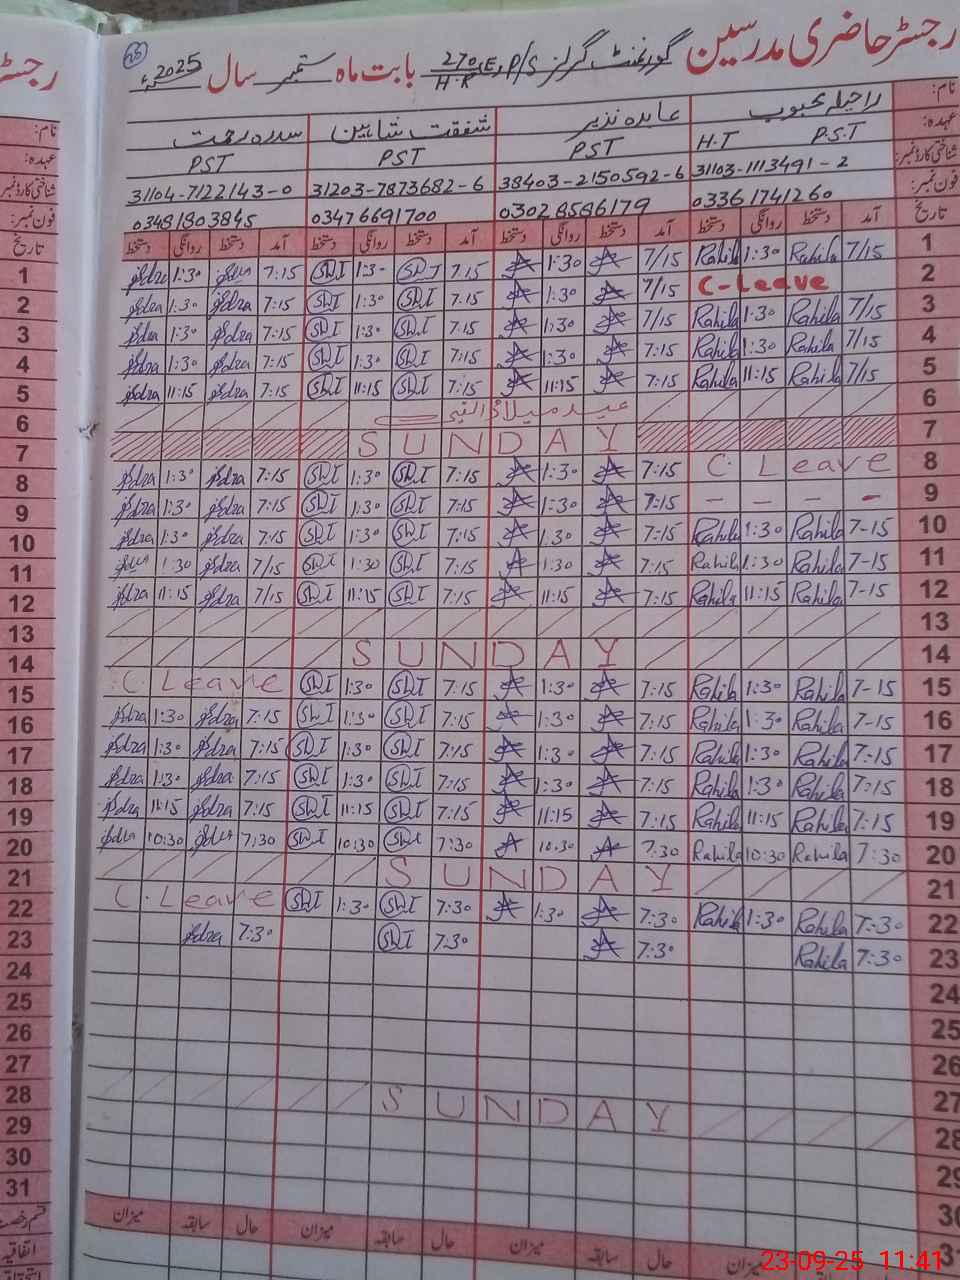 رجسٹر حاضری مدرسین گورنمنٹ گرلز P/S 270,E, H.R بابت ماہ ستمبر سال 2025ء
نام: راحیلہ محبوب عابدہ نذیر شفقت شاہین سدرہ
عہدہ: P.S.T H.T PST PST PST
شناختی کارڈ نمبر: 31103-1113491-2 38403-2150592-6 31203-7873682-6 31104-7122143-0
فون نمبر: 03361741260 03028586179 03476691700 03481803845
تاریخ آمد دستخط روانگی دستخط آمد دستخط روانگی دستخط آمد دستخط روانگی دستخط آمد دستخط روانگی دستخط تاریخ
1 7/15 Rahila 1:30 Rahila 7/15 1:30 7:15 SWI 1:3- SWI 7:15 1:30 Sdra 1
2 C-Leave 7/15 1:30 7:15 SWI 1:30 SWI 7:15 Sdra 1:30 Sdra 2
3 7/15 Rahila 1:30 Rahila 7/15 1:30 7:15 SWI 1:30 SWI 7:15 Sdra 1:30 Sdra 3
4 7/15 Rahila 1:30 Rahila 7:15 1:30 7:15 SWI 1:30 SWI 7:15 Sdra 1:30 Sdra 4
5 7/15 Rahila 11:15 Rahila 7:15 11:15 7:15 SWI 11:15 SWI 7:15 Sdra 11:15 Sdra 5
6 عید میلاد النبی 6
7 SUNDAY 7
8 C. Leave 7:15 1:30 7:15 SWI 1:30 SWI 7:15 Sdra 1:30 Sdra 8
9 - - - - 7:15 1:30 7:15 SWI 1:30 SWI 7:15 Sdra 1:30 Sdra 9
10 7-15 Rahila 1:30 Rahila 7:15 1:30 7:15 SWI 1:30 SWI 7:15 Sdra 1:30 Sdra 10
11 7-15 Rahila 1:30 Rahila 7:15 1:30 7:15 SWI 1:30 SWI 7/15 Sdra 1:30 11
12 7-15 Rahila 11:15 Rahila 7:15 11:15 7:15 SWI 11:15 SWI 7/15 Sdra 11:15 Sdra 12
13 13
14 SUNDAY 14
15 7-15 Rahila 1:30 Rahila 7:15 1:30 7:15 SWI 1:30 SWI C. Leave 15
16 7-15 Rahila 1:30 Rahila 7:15 1:30 7:15 SWI 1:30 SWI 7:15 Sdra 1:30 Sdra 16
17 7:15 Rahila 1:30 Rahila 7:15 1:30 7:15 SWI 1:30 SWI 7:15 Sdra 1:30 Sdra 17
18 7:15 Rahila 1:30 Rahila 7:15 1:30 7:15 SWI 1:30 SWI 7:15 Sdra 1:30 Sdra 18
19 7:15 Rahila 11:15 Rahila 7:15 11:15 7:15 SWI 11:15 SWI 7:15 Sdra 11:15 Sdra 19
20 7:30 Rahila 10:30 Rahila 7:30 10:30 7:30 SWI 10:30 SWI 7:30 10:30 20
21 SUNDAY 21
22 7:30 Rahila 1:30 Rahila 7:30 1:30 7:30 SWI 1:30 SWI C. Leave 22
23 7:30 Rahila 7:30 7:30 SWI 7:30 Sdra 23
24 24
25 25
26 26
27 27
28 SUNDAY 28
29 29
30 30
31 31
میزان حال سابقہ میزان حال سابقہ میزان حال سابقہ میزان
23-09-25 11:41